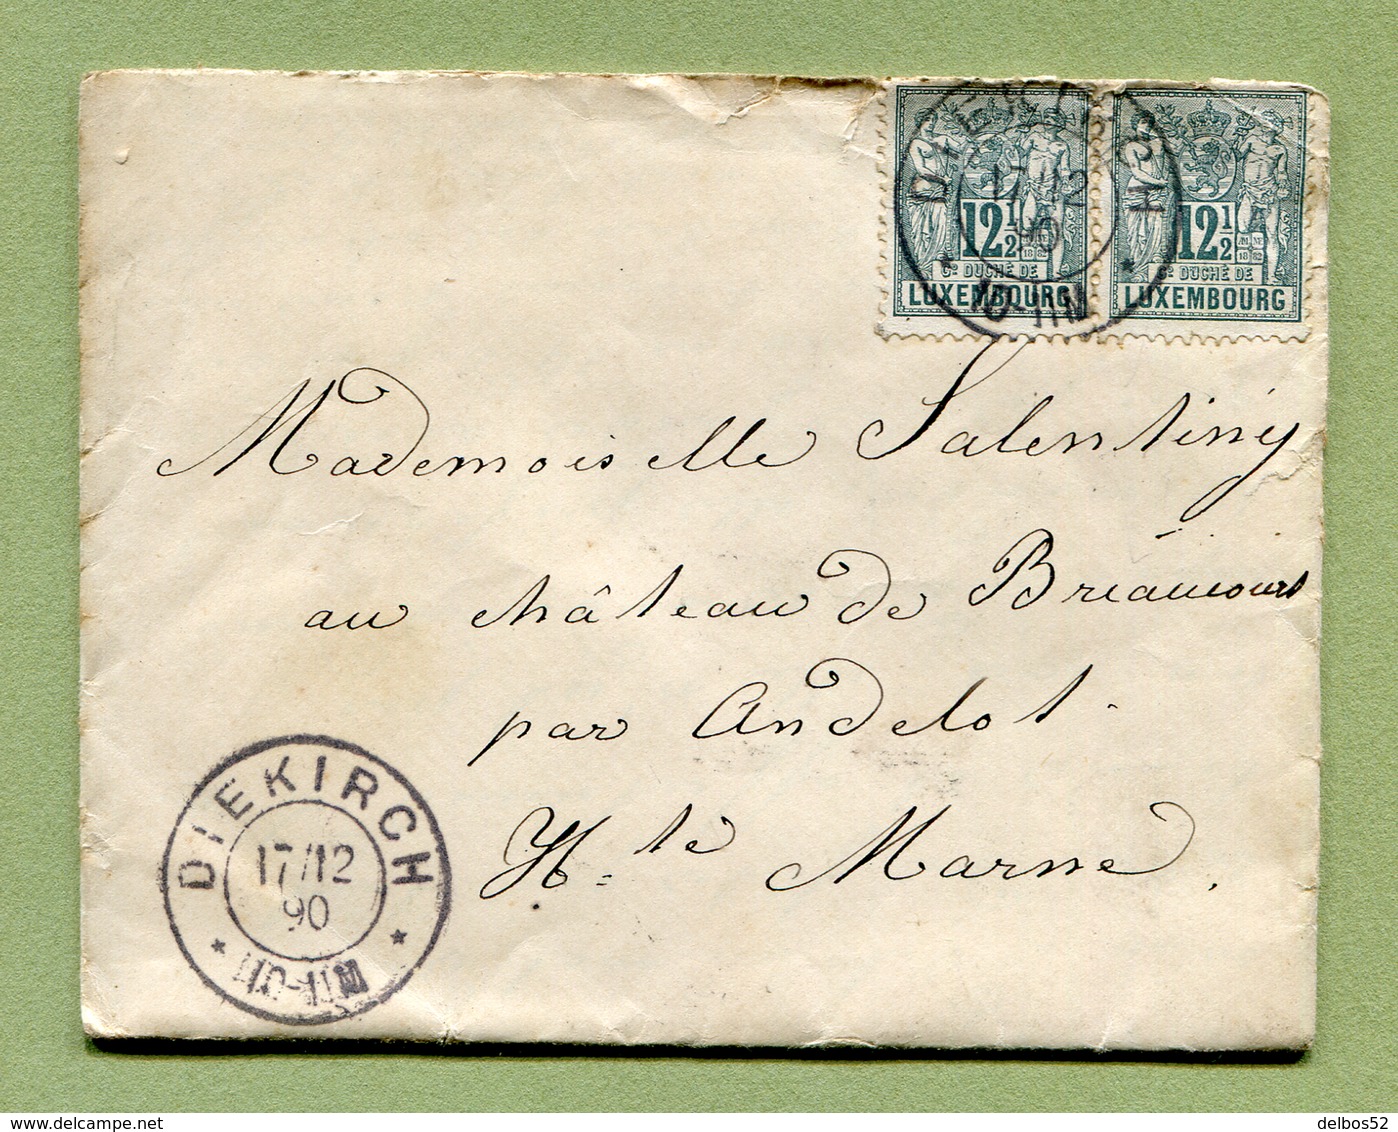 12 1/2 12 1/2
Gᴰ DUCHÉ DE Gᴰ DUCHÉ DE
LUXEMBOURG LUXEMBOURG
Mademoiselle Salentiny
au château de Briaucourt
par Andelot.
Hte Marne.
DIEKIRCH
17/12
90
delbos52